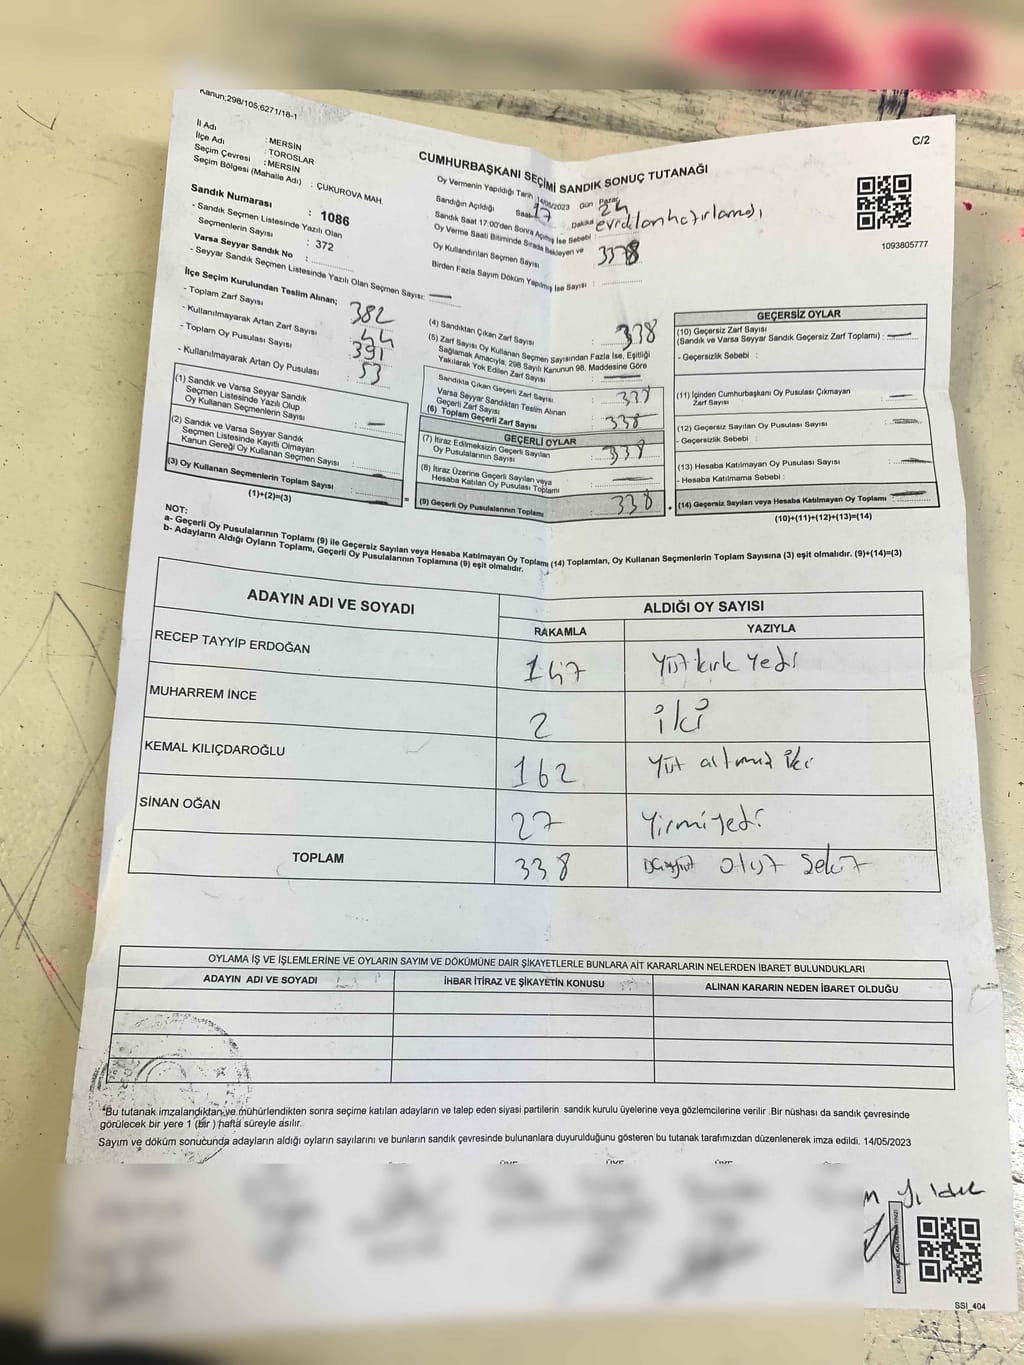 Kanun;298/105,6271/18-1
C/2
İl Adı : MERSİN
İlçe Adı : TOROSLAR
Seçim Çevresi : MERSİN
Seçim Bölgesi (Mahalle Adı) : ÇUKUROVA MAH.
CUMHURBAŞKANI SEÇİMİ SANDIK SONUÇ TUTANAĞI
Oy Vermenin Yapıldığı Tarih 14/05/2023 Gün : Pazar
Sandığın Açıldığı Saat 17 Dakika 24
Sandık Saat 17:00'den Sonra Açılmış İse Sebebi :
Oy Verme Saati Bitiminde Sırada Bekleyen ve
Oy Kullandırılan Seçmen Sayısı
Birden Fazla Sayım Döküm Yapılmış İse Sayısı :
1093805777
Sandık Numarası : 1086
- Sandık Seçmen Listesinde Yazılı Olan
Seçmenlerin Sayısı : 372
Varsa Seyyar Sandık No :
- Seyyar Sandık Seçmen Listesinde Yazılı Olan Seçmen Sayısı:
İlçe Seçim Kurulundan Teslim Alınan;
- Toplam Zarf Sayısı : 382
- Kullanılmayarak Artan Zarf Sayısı : 44
- Toplam Oy Pusulası Sayısı : 391
- Kullanılmayarak Artan Oy Pusulası : 53
(1) Sandık ve Varsa Seyyar Sandık
Seçmen Listesinde Yazılı Olup
Oy Kullanan Seçmenlerin Sayısı :
(2) Sandık ve Varsa Seyyar Sandık
Seçmen Listesinde Kayıtlı Olmayan
Kanun Gereği Oy Kullanan Seçmen Sayısı :
(3) Oy Kullanan Seçmenlerin Toplam Sayısı :
(1)+(2)=(3)
(4) Sandıktan Çıkan Zarf Sayısı : 338
(5) Zarf Sayısı Oy Kullanan Seçmen Sayısından Fazla İse, Eşitliği
Sağlamak Amacıyla; 298 Sayılı Kanunun 98. Maddesine Göre
Yakılarak Yok Edilen Zarf Sayısı :
Sandıkta Çıkan Geçerli Zarf Sayısı : 338
Varsa Seyyar Sandıktan Teslim Alınan
Geçerli Zarf Sayısı
(6) Toplam Geçerli Zarf Sayısı : 338
GEÇERLİ OYLAR
(7) İtiraz Edilmeksizin Geçerli Sayılan
Oy Pusulalarının Sayısı : 338
(8) İtiraz Üzerine Geçerli Sayılan veya
Hesaba Katılan Oy Pusulası Toplamı :
(9) Geçerli Oy Pusulalarının Toplamı : 338
GEÇERSİZ OYLAR
(10) Geçersiz Zarf Sayısı
(Sandık ve Varsa Seyyar Sandık Geçersiz Zarf Toplamı) :
- Geçersizlik Sebebi :
(11) İçinden Cumhurbaşkanı Oy Pusulası Çıkmayan
Zarf Sayısı :
(12) Geçersiz Sayılan Oy Pusulası Sayısı :
- Geçersizlik Sebebi :
(13) Hesaba Katılmayan Oy Pusulası Sayısı :
- Hesaba Katılmama Sebebi :
(14) Geçersiz Sayılan veya Hesaba Katılmayan Oy Toplamı :
(10)+(11)+(12)+(13)=(14)
NOT:
a- Geçerli Oy Pusulalarının Toplamı (9) ile Geçersiz Sayılan veya Hesaba Katılmayan Oy Toplamı (14) Toplamları, Oy Kullanan Seçmenlerin Toplam Sayısına (3) eşit olmalıdır. (9)+(14)=(3)
b- Adayların Aldığı Oyların Toplamı, Geçerli Oy Pusulalarının Toplamına (9) eşit olmalıdır.
ADAYIN ADI VE SOYADI ALDIĞI OY SAYISI
RAKAMLA YAZIYLA
RECEP TAYYİP ERDOĞAN 147 Yüz kırk yedi
MUHARREM İNCE 2 iki
KEMAL KILIÇDAROĞLU 162 Yüz altmış iki
SİNAN OĞAN 27 Yirmiyedi
TOPLAM 338 otuz sekiz
OYLAMA İŞ VE İŞLEMLERİNE VE OYLARIN SAYIM VE DÖKÜMÜNE DAİR ŞİKAYETLERLE BUNLARA AİT KARARLARIN NELERDEN İBARET BULUNDUKLARI
ADAYIN ADI VE SOYADI İHBAR İTİRAZ VE ŞİKAYETİN KONUSU ALINAN KARARIN NEDEN İBARET OLDUĞU
*Bu tutanak imzalandıktan ve mühürlendikten sonra seçime katılan adayların ve talep eden siyasi partilerin sandık kurulu üyelerine veya gözlemcilerine verilir .Bir nüshası da sandık çevresinde
görülecek bir yere 1 (bir ) hafta süreyle asılır.
Sayım ve döküm sonucunda adayların aldığı oyların sayılarını ve bunların sandık çevresinde bulunanlara duyurulduğunu gösteren bu tutanak tarafımızdan düzenlenerek imza edildi. 14/05/2023
SSI_404